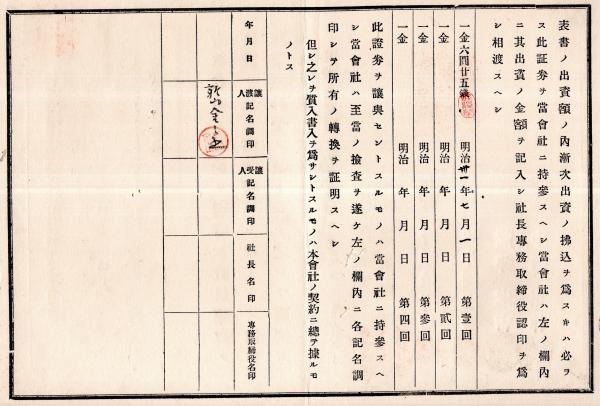 表書ノ出資額ノ內漸次出資ノ拂込ヲ爲スキハ必ヲ
ス此証券ヲ當會社ニ持參スヘシ當會社ハ左ノ欄內
ニ其出資ノ金額ヲ記入シ社長專務取締役認印ヲ爲
シ相渡スヘシ
一金六圓廿五錢 明治卅一年七月一日 第壹回
一金 明治 年 月 日 第貳回
一金 明治 年 月 日 第參回
一金 明治 年 月 日 第四回
此證劵ヲ讓與セントスルモノハ當會社ニ持參スヘ
シ當會社ハ至當ノ撿査ヲ遂ケ左ノ欄內ニ各記名調
印シテ所有ノ轉換ヲ証明スヘシ
但シ之レヲ質入書入ヲ爲サントスルモノハ本會社ノ契約ニ總テ據ルモ
ノトス
年月日 讓渡人記名調印 讓受人記名調印 社長名印 專務取締役名印